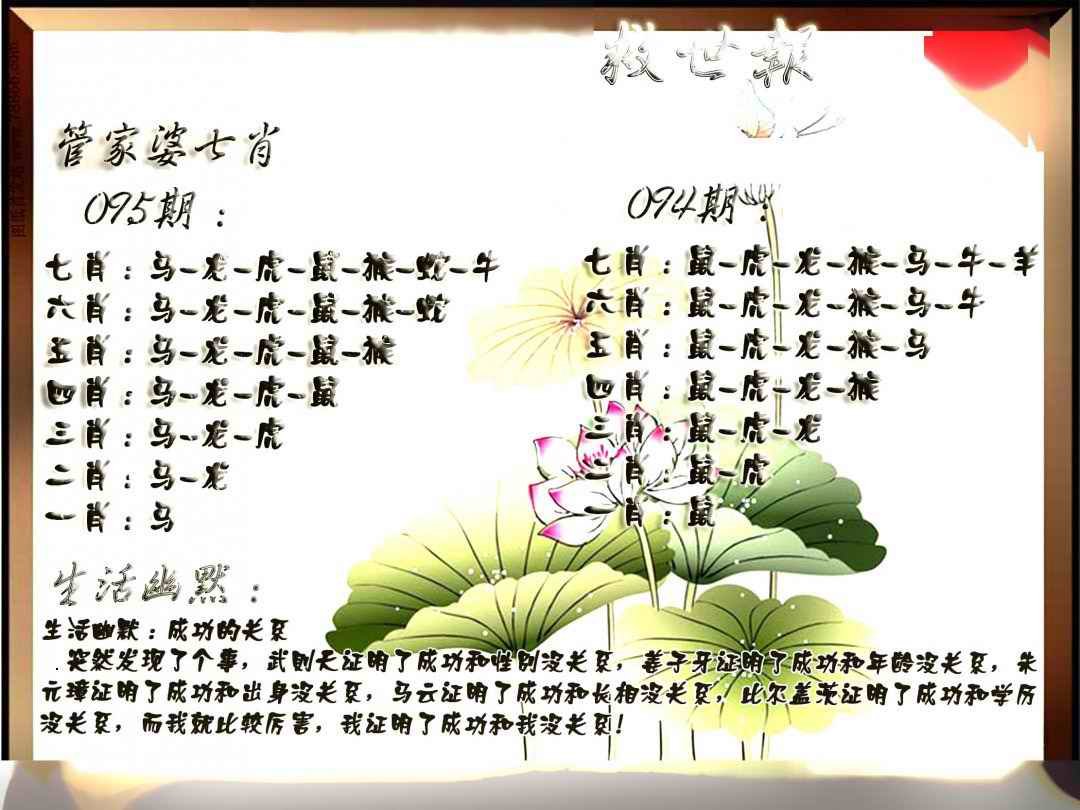 救世報
管家婆七肖
095期：
七肖：马-龙-虎-鼠-猴-蛇-牛
六肖：马-龙-虎-鼠-猴-蛇
五肖：马-龙-虎-鼠-猴
四肖：马-龙-虎-鼠
三肖：马-龙-虎
二肖：马-龙
一肖：马
094期：
七肖：鼠-虎-龙-猴-马-牛-羊
六肖：鼠-虎-龙-猴-马-牛
五肖：鼠-虎-龙-猴-马
四肖：鼠-虎-龙-猴
三肖：鼠-虎-龙
二肖：鼠-虎
一肖：鼠
生活幽默：
生活幽默：成功的关系
．突然发现了个事，武则天证明了成功和性别没关系，姜子牙证明了成功和年龄没关系，朱
元璋证明了成功和出身没关系，马云证明了成功和长相没关系，比尔盖茨证明了成功和学历
没关系，而我就比较厉害，我证明了成功和我没关系！